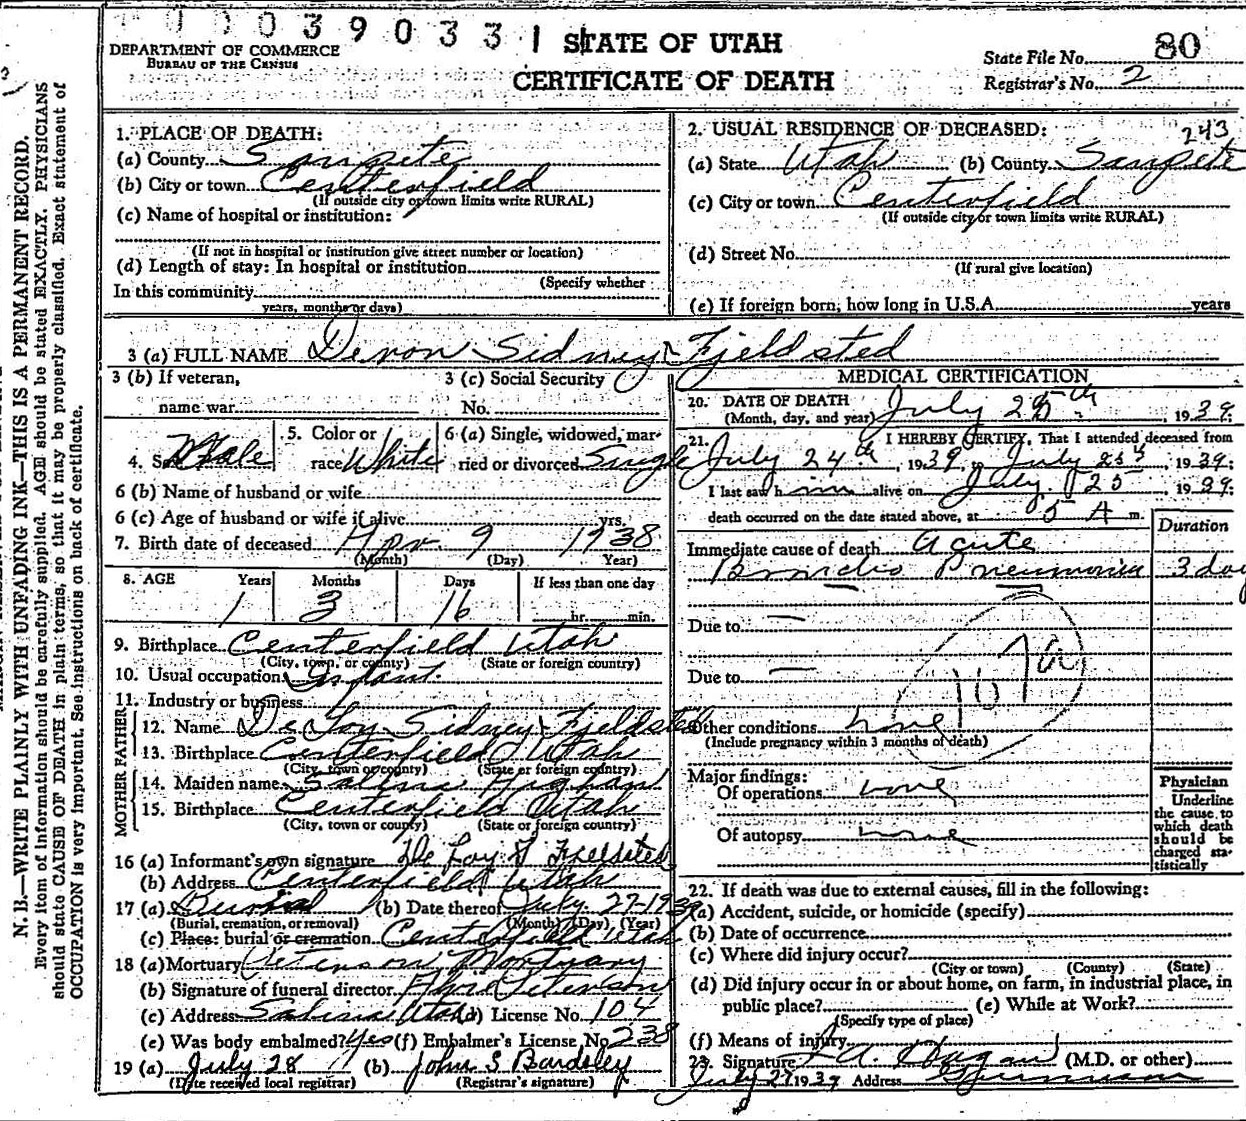 0 0 0 3 9 0 3 3 1
STATE OF UTAH
CERTIFICATE OF DEATH
DEPARTMENT OF COMMERCE
BUREAU OF THE CENSUS
State File No. 80
Registrar's No. 2
1. PLACE OF DEATH:
(a) County Sanpete
(b) City or town Centerfield
(If outside city or town limits write RURAL)
(c) Name of hospital or institution:
(If not in hospital or institution give street number or location)
(d) Length of stay: In hospital or institution
(Specify whether
In this community
years, months or days)
2. USUAL RESIDENCE OF DECEASED: 243
(a) State Utah (b) County Sanpete
(c) City or town Centerfield
(If outside city or town limits write RURAL)
(d) Street No.
(If rural give location)
(e) If foreign born, how long in U.S.A. years
3 (a) FULL NAME Devon Sidney Fjeldsted
3 (b) If veteran, 3 (c) Social Security
name war No.
4. Sex Male 5. Color or race White 6 (a) Single, widowed, married or divorced Single
6 (b) Name of husband or wife
6 (c) Age of husband or wife if alive yrs.
7. Birth date of deceased Apr. 9 1938
(Month) (Day) Year)
8. AGE Years Months Days If less than one day
1 3 16 hr. min.
9. Birthplace Centerfield Utah
(City, town, or county) (State or foreign country)
10. Usual occupation Infant.
11. Industry or business
FATHER
12. Name De Loy Sidney Fjeldsted
13. Birthplace Centerfield Utah
(City, town or county) (State or foreign country)
MOTHER
14. Maiden name
15. Birthplace Centerfield Utah
(City, town or county) (State or foreign country)
16 (a) Informant's own signature De Loy S Fjeldsted
(b) Address Centerfield Utah
17 (a) Burial (b) Date thereof July 27-1939
(Burial, cremation, or removal) (Month) (Day) (Year)
(c) Place: burial or cremation Centerfield Utah
18 (a) Mortuary Peterson Mortuary
(b) Signature of funeral director Peterson
(c) Address Salina Utah (d) License No. 104
(e) Was body embalmed? Yes (f) Embalmer's License No. 238
19 (a) July 28 (b) John S Bardsley
(Date received local registrar) (Registrar's signature)
MEDICAL CERTIFICATION
20. DATE OF DEATH
(Month, day, and year) July 25th 1939.
21. I HEREBY CERTIFY, That I attended deceased from
July 24th, 1939, to July 25, 1939;
I last saw him alive on July 25, 1939;
death occurred on the date stated above, at 5 A m.
Duration
Immediate cause of death Acute
Broncho Pneumonia 3 day
Due to
Due to
107a
Other conditions none
(Include pregnancy within 3 months of death)
Major findings:
Of operations none
Of autopsy none
Physician
Underline
the cause to
which death
should be
charged sta-
tistically
22. If death was due to external causes, fill in the following:
(a) Accident, suicide, or homicide (specify)
(b) Date of occurrence
(c) Where did injury occur?
(City or town) (County) (State)
(d) Did injury occur in or about home, on farm, in industrial place, in
public place? (e) While at Work?
(Specify type of place)
(f) Means of injury
23. Signature A. Hagan (M.D. or other)
July 27 1939 Address Gunnison
N. B.—WRITE PLAINLY WITH UNFADING INK—THIS IS A PERMANENT RECORD.
Every item of information should be carefully supplied. AGE should be stated EXACTLY. PHYSICIANS
should state CAUSE OF DEATH in plain terms, so that it may be properly classified. Exact statement of
OCCUPATION is very important. See instructions on back of certificate.